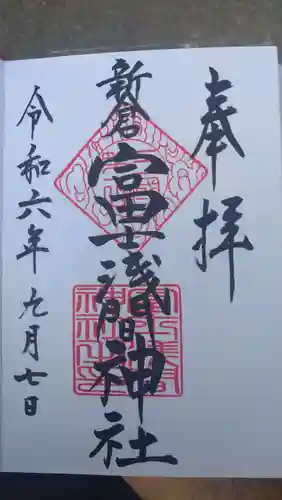 奉拝
新倉
富士浅間神社
令和六年九月七日